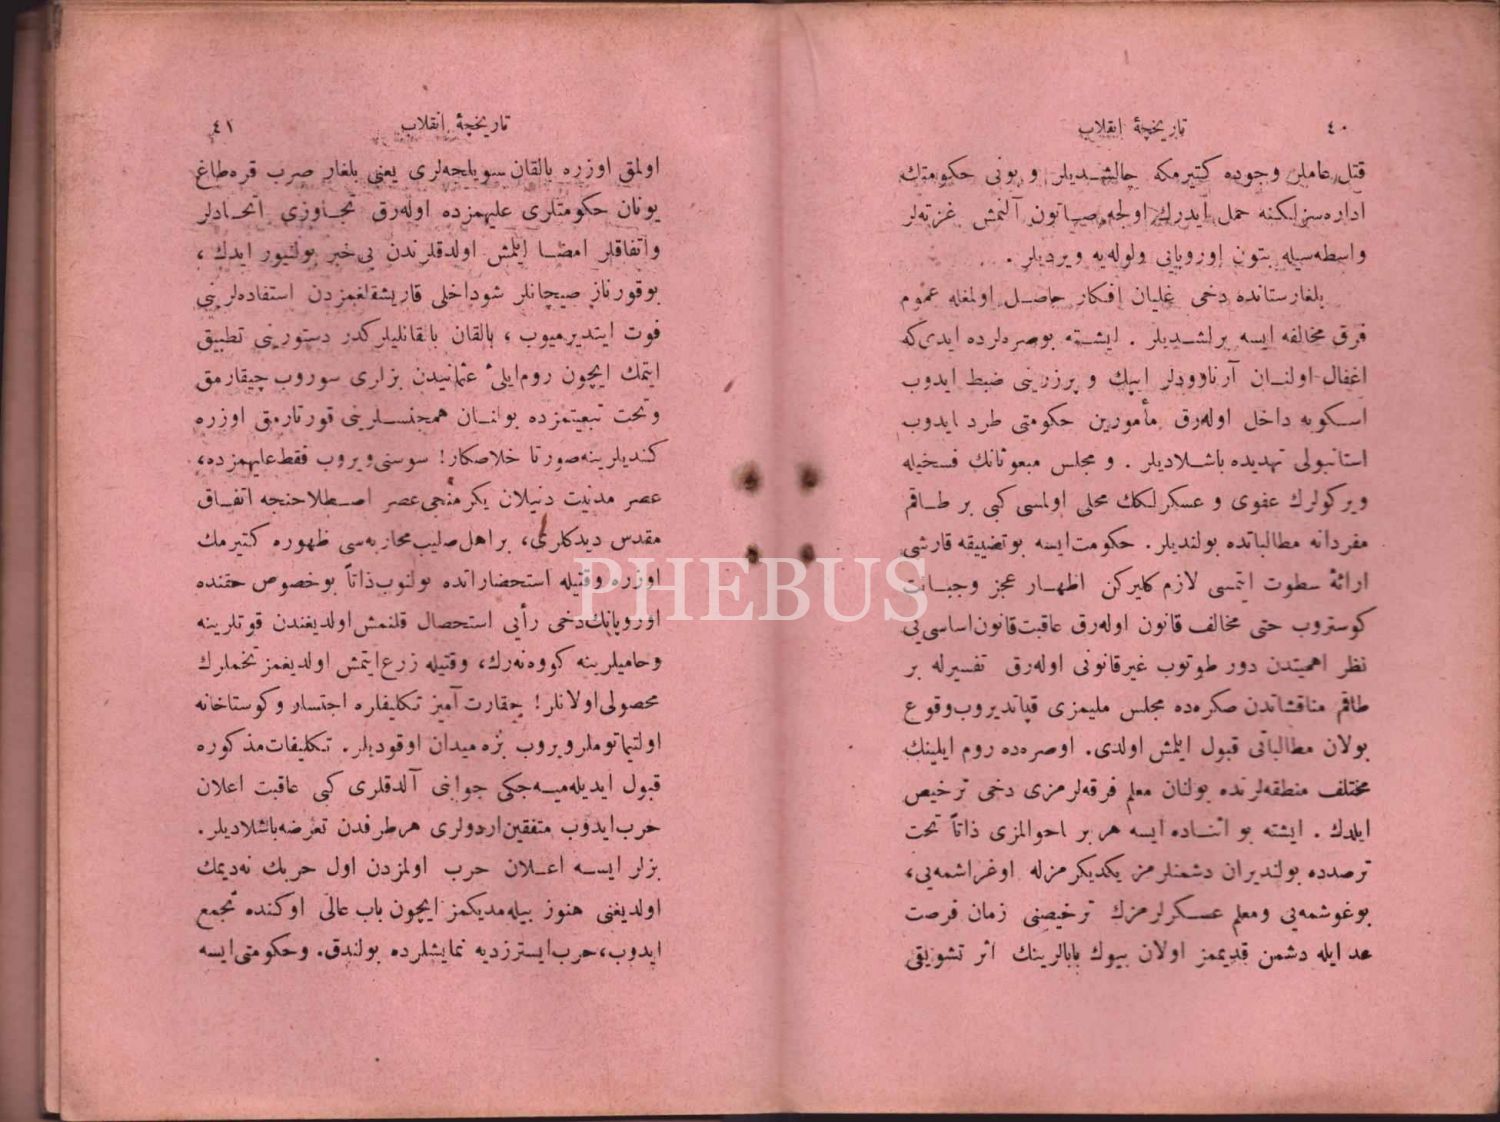 ٤٠
تاریخچهٔ انقلاب
قتل عاملر وجوده كتیرمكه چالشدیلر و بونی حكومتك
اداره‌سزلكنه حمل ایدرك اولجه صاتون آلنمش غزته‌لر
واسطه‌سیله بتون اوروپایی ولوله‌یه ویردیلر .
بلغارستانده دخی غلیان افكار حاصل اولمغله عموم
فرق مخالفه ایسه برلشدیلر . ایشته بوصره‌لرده ایدی‌كه
اغفال اولنان آرناوودلر ایپك و پرزرینی ضبط ایدوب
اسكوبه داخل اوله‌رق مأمورین حكومتی طرد ایدوب
استانبولی تهدیده باشلادیلر . و مجلس مبعوثانك فسخیله
ویركولرك عفوی و عسكرلكك محلی اولمسی كبی بر طاقم
مفردانه مطالباتده بولندیلر . حكومت ایسه بوتضییقه قارشی
ارائهٔ سطوت ایتمسی لازم كلیركن اظهار عجز وجبانت
كوستروب حتی مخالف قانون اوله‌رق عاقبت قانون اساسی‌یی
نظر اهمیتدن دور طوتوب غیرقانونی اوله‌رق تفسیرله بر
طاقم مناقشاتدن صكره‌ده مجلس ملیمزی قپاتدیروب وقوع
بولان مطالباتی قبول ایلمش اولدی. اوصره‌ده روم ایلینك
مختلف منطقه‌لرنده بولنان معلم فرقه‌لرمزی دخی ترخیص
ایلدك . ایشته بو اثناده ایسه هر بر احوالمزی ذاتاً تحت
ترصدده بولندیران دشمنلرمز یكدیكرمزله اوغراشمه‌یی،
بوغوشمه‌یی ومعلم عسكرلرمزك ترخیصنی زمان فرصت
عد ایله دشمن قدیممز اولان بیوك بابالرینك اثر تشویقی
٤١
تاریخچهٔ انقلاب
اولمق اوزره بالقان سویلجه‌لری یعنی بلغار صرب قره‌طاغ
یونان حكومتلری علیهمزده اوله‌رق تجاوزی اتحادلر
واتفاقلر امضا ایلمش اولدقلرندن بی‌خبر بولنیور ایدك ،
بوقورناز صیچانلر شوداخلی قاریشقلغمزدن استفاده‌لرینی
فوت ایتدیرمیوب ، بالقان بالقانلیلركدر دستورینی تطبیق
ایتمك ایچون روم‌ایلیٔ عثمانیدن بزلری سوروب چیقارمق
وتحت تبعیتمزده بولنان همجنسلرینی قورتارمق اوزره
كندیلرینه صورتا خلاصكار! سوسنی ویروب فقط علیهمزده،
عصر مدنیت دنیلان یكرمنجی عصر اصطلاحنجه اتفاق
مقدس دیدكلری، بر اهل صلیب محاربه‌سی ظهوره كتیرمك
اوزره وقتیله استحضاراتده بولنوب ذاتاً بوخصوص حقنده
اوروپانك دخی رأیی استحصال قلنمش اولدیغندن قوتلرینه
وحامیلرینه كووه‌نه‌رك، وقتیله زرع ایتمش اولدیغمز تخملرك
محصولی اولانلر! حقارت آمیز تكلیفلره اجتسار وكوستاخانه
اولتیماتوملر ویروب بزه میدان اوقودیلر. تكلیفات مذكوره
قبول ایدیله‌میه‌جكی جوابنی آلدقلری كبی عاقبت اعلان
حرب ایدوب متفقین اردولری هر طرفدن تعرضه باشلادیلر.
بزلر ایسه اعلان حرب اولمزدن اول حربك نه‌دیمك
اولدیغنی هنوز بیله‌مدیكمز ایچون باب عالی اوكنده تجمع
ایدوب، حرب ایسترز دیه نمایشلرده بولندق. وحكومتی ایسه
PHEBUS